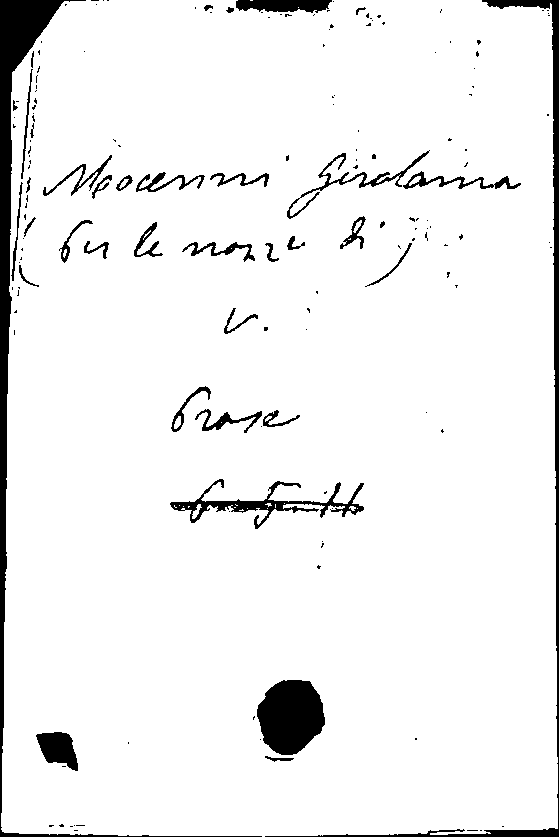 Mocenni Girolama
(Per le nozze di)
V.
Prose